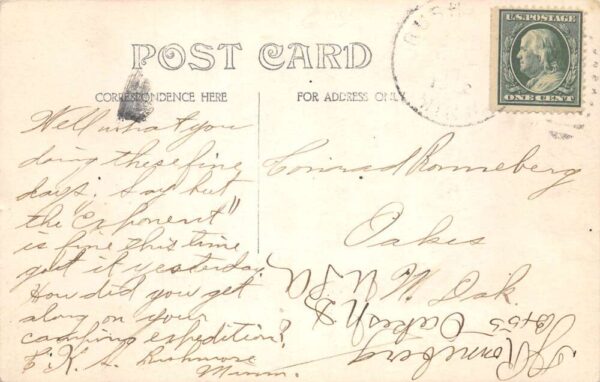 POST CARD
CORRESPONDENCE HERE
FOR ADDRESS ONLY
U.S. POSTAGE
ONE CENT
RUSH
MINN
Well what you
doing these fine
days; say but
the "Exponent"
is fine this time
got it yesterday.
How did you get
along on your
camping espedition?
E. K. L. Rushmore
Minn.
Conrad Ronneberg
Oakes
N. Dak.
Ronneberg
Oakes ND
USA